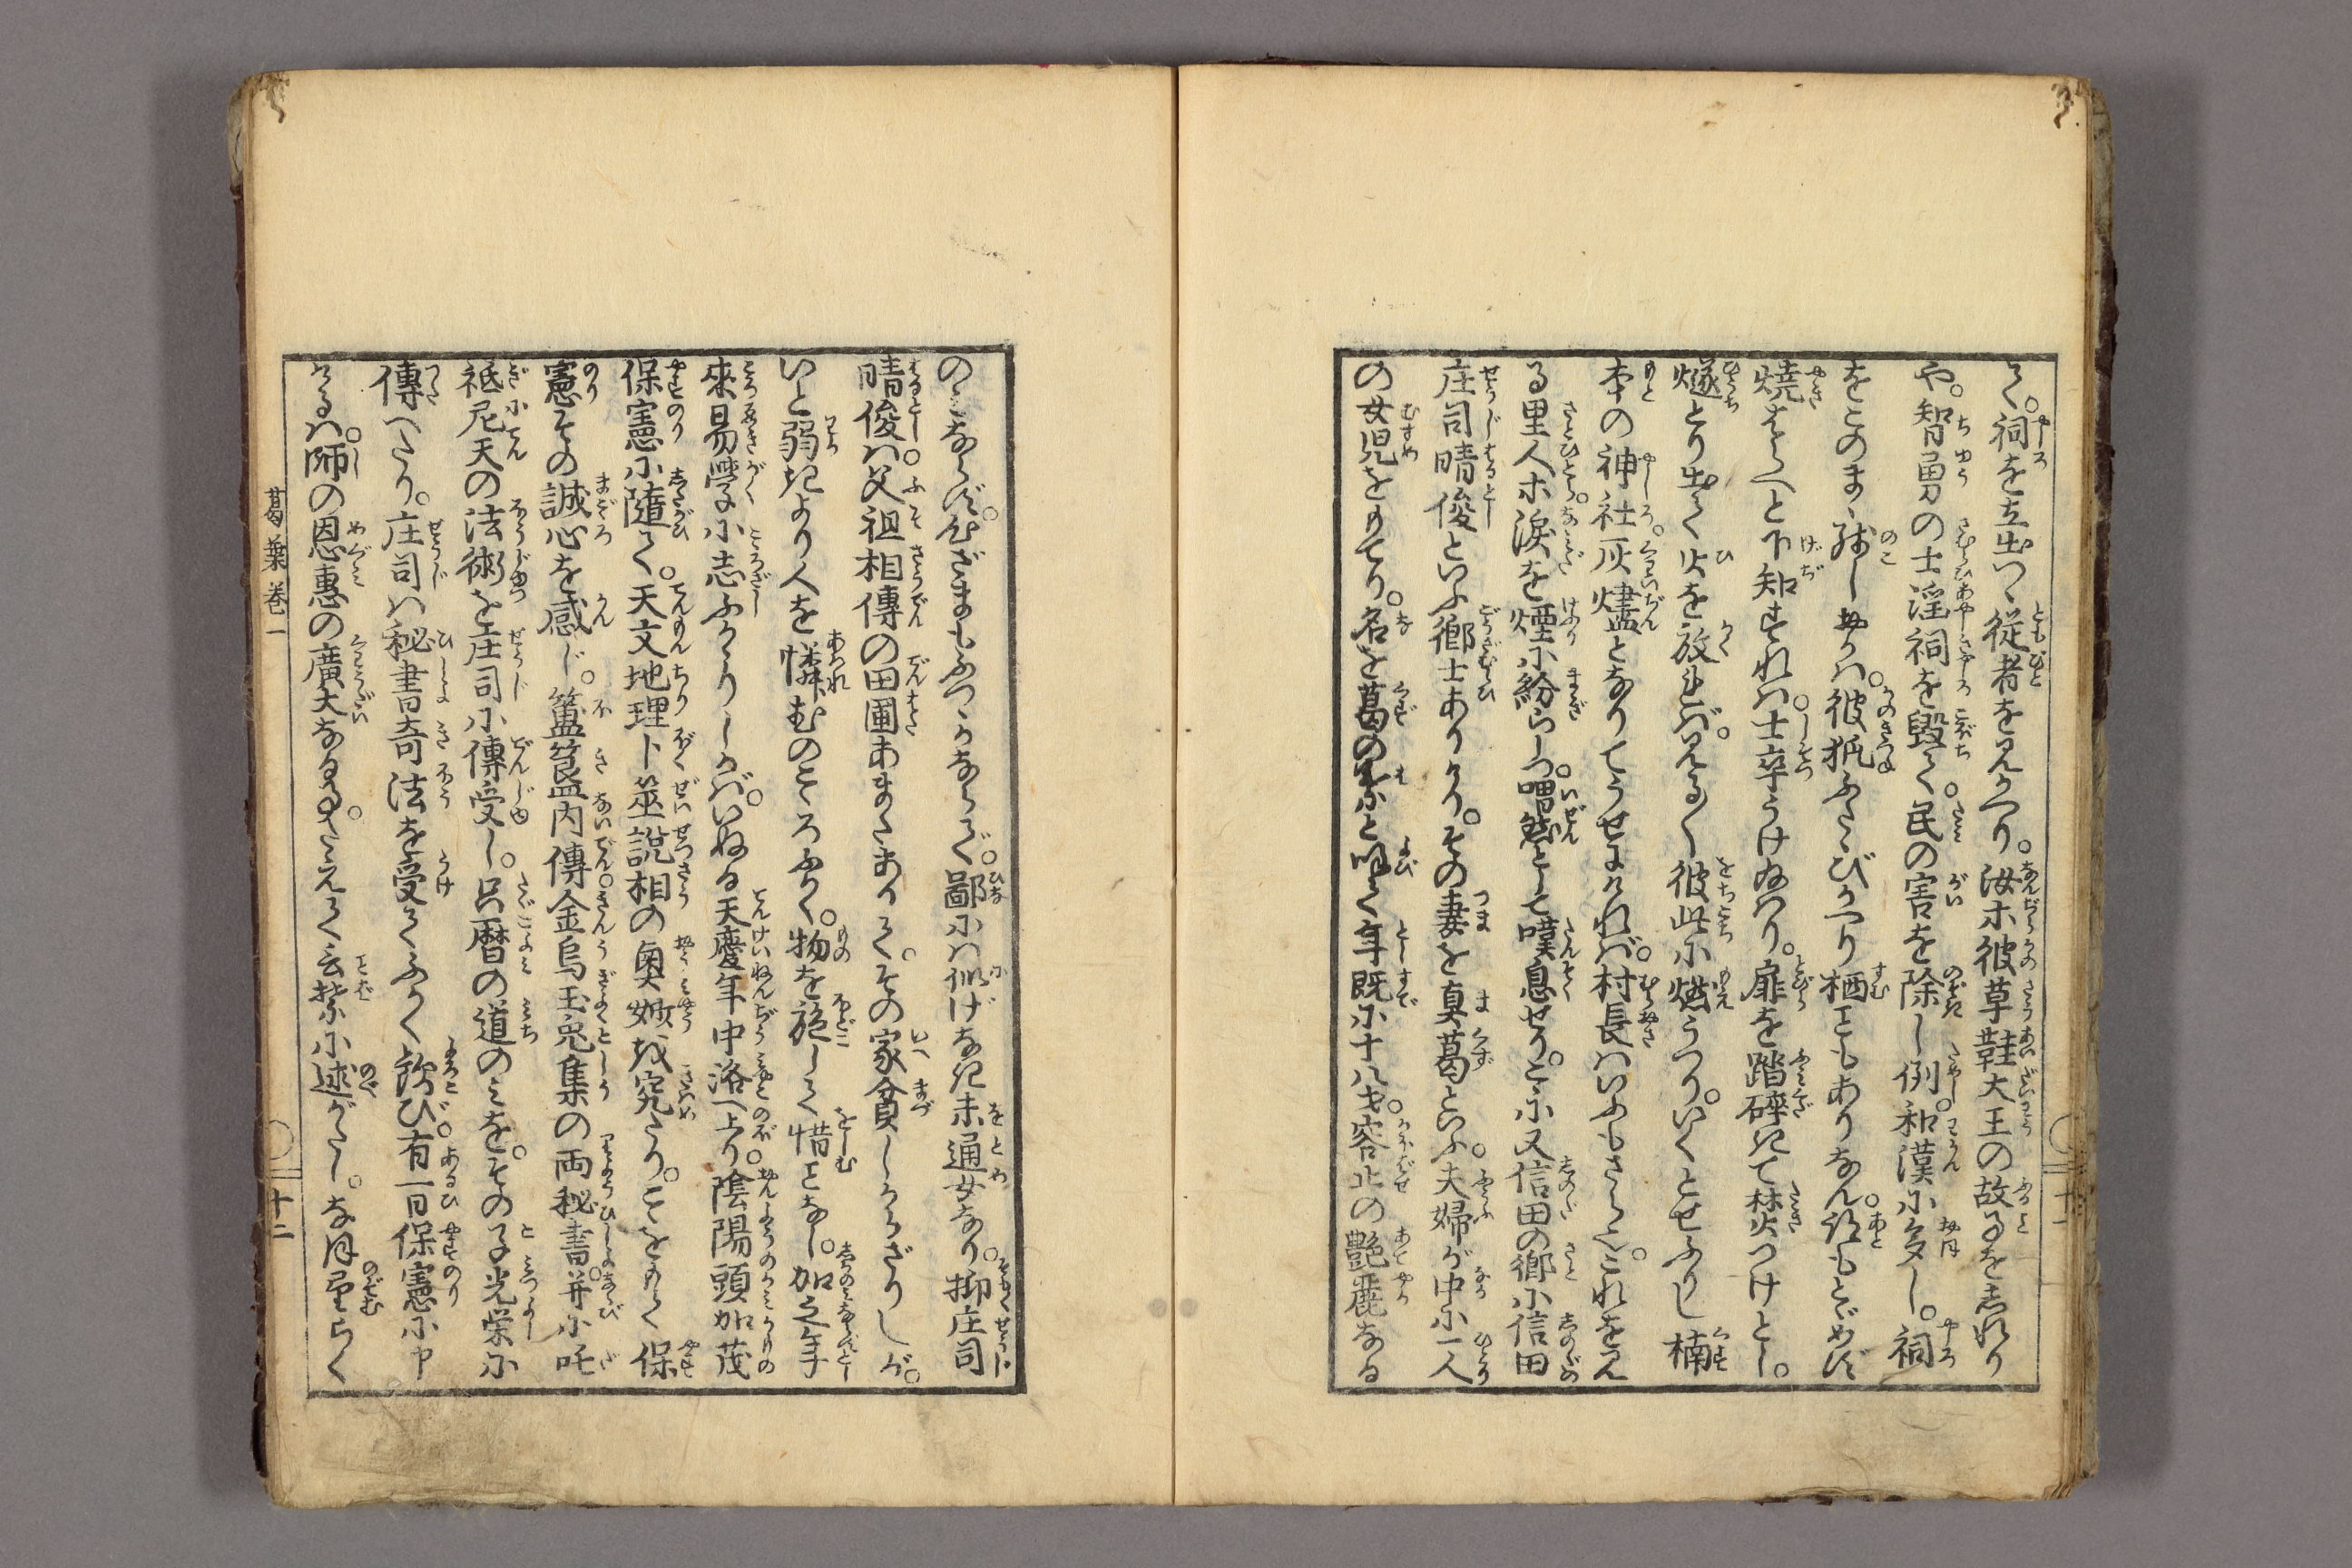 て。祠を立出つゝ従者を見かへり。汝等彼草鞋大王の故事を志れり
や。智勇の士淫祠を毀て。民の害を除し例。和漢に多し。祠
をこのまゝ残しなバ。彼狐ふたゝびかへり栖こともありなん。跡もとゞめず
焼すてよと下知すれバ。士卒うけ給ハり。扉を踏砕きて焚火つけとし。
燧とり出て火を放せバ。見る〳〵彼此に燃うつり。いくとせふりし楠
本の神社。灰燼となりてうせにけれバ。村長ハいふもさら也。これを見
る里人等。涙を煙に紛らしつ。喟然として嘆息せり。こゝに又信田の郷に信田
庄司晴俊といふ郷士ありけり。その妻を真葛といふ。夫婦が中に一人
の女児をもてり。名を葛の葉と呼て年既に十八才。容止の艶麗なる
のミならず。心ざまもふつゝかならで。鄙にハ似げなき未通女なり。抑庄司
晴俊ハ。父祖相傳の田圃あまたありて。その家貧しからざりしが。
いと弱きより人を憐むのこゝろふかく。物を施して惜ことなし。加之年
來易學に志ふかゝりしかバ。いぬる天慶年中洛へ上り。陰陽頭加茂
保憲に隨て。天文地理卜筮説相の奥妙を究たり。ことをもて保
憲その誠心を感じ。簠簋内傳金烏玉兎集の両秘書。并に吒
祗尼天の法術を庄司に傳受し。只暦の道のミを。その子光栄に
傳へたり。庄司ハ秘書奇法を受てふかく歓び。有一日保憲に申
けるハ。師の恩惠の廣大なる事。たえて言葉に述がたし。な月望らく
葛葉巻一
十二